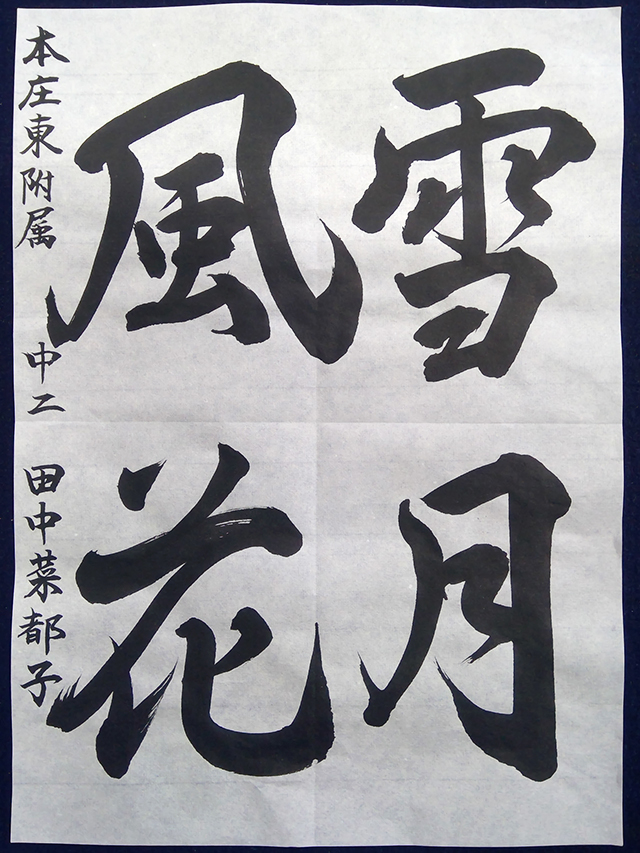 雪月
風花
本庄東附属 中二 田中菜都子